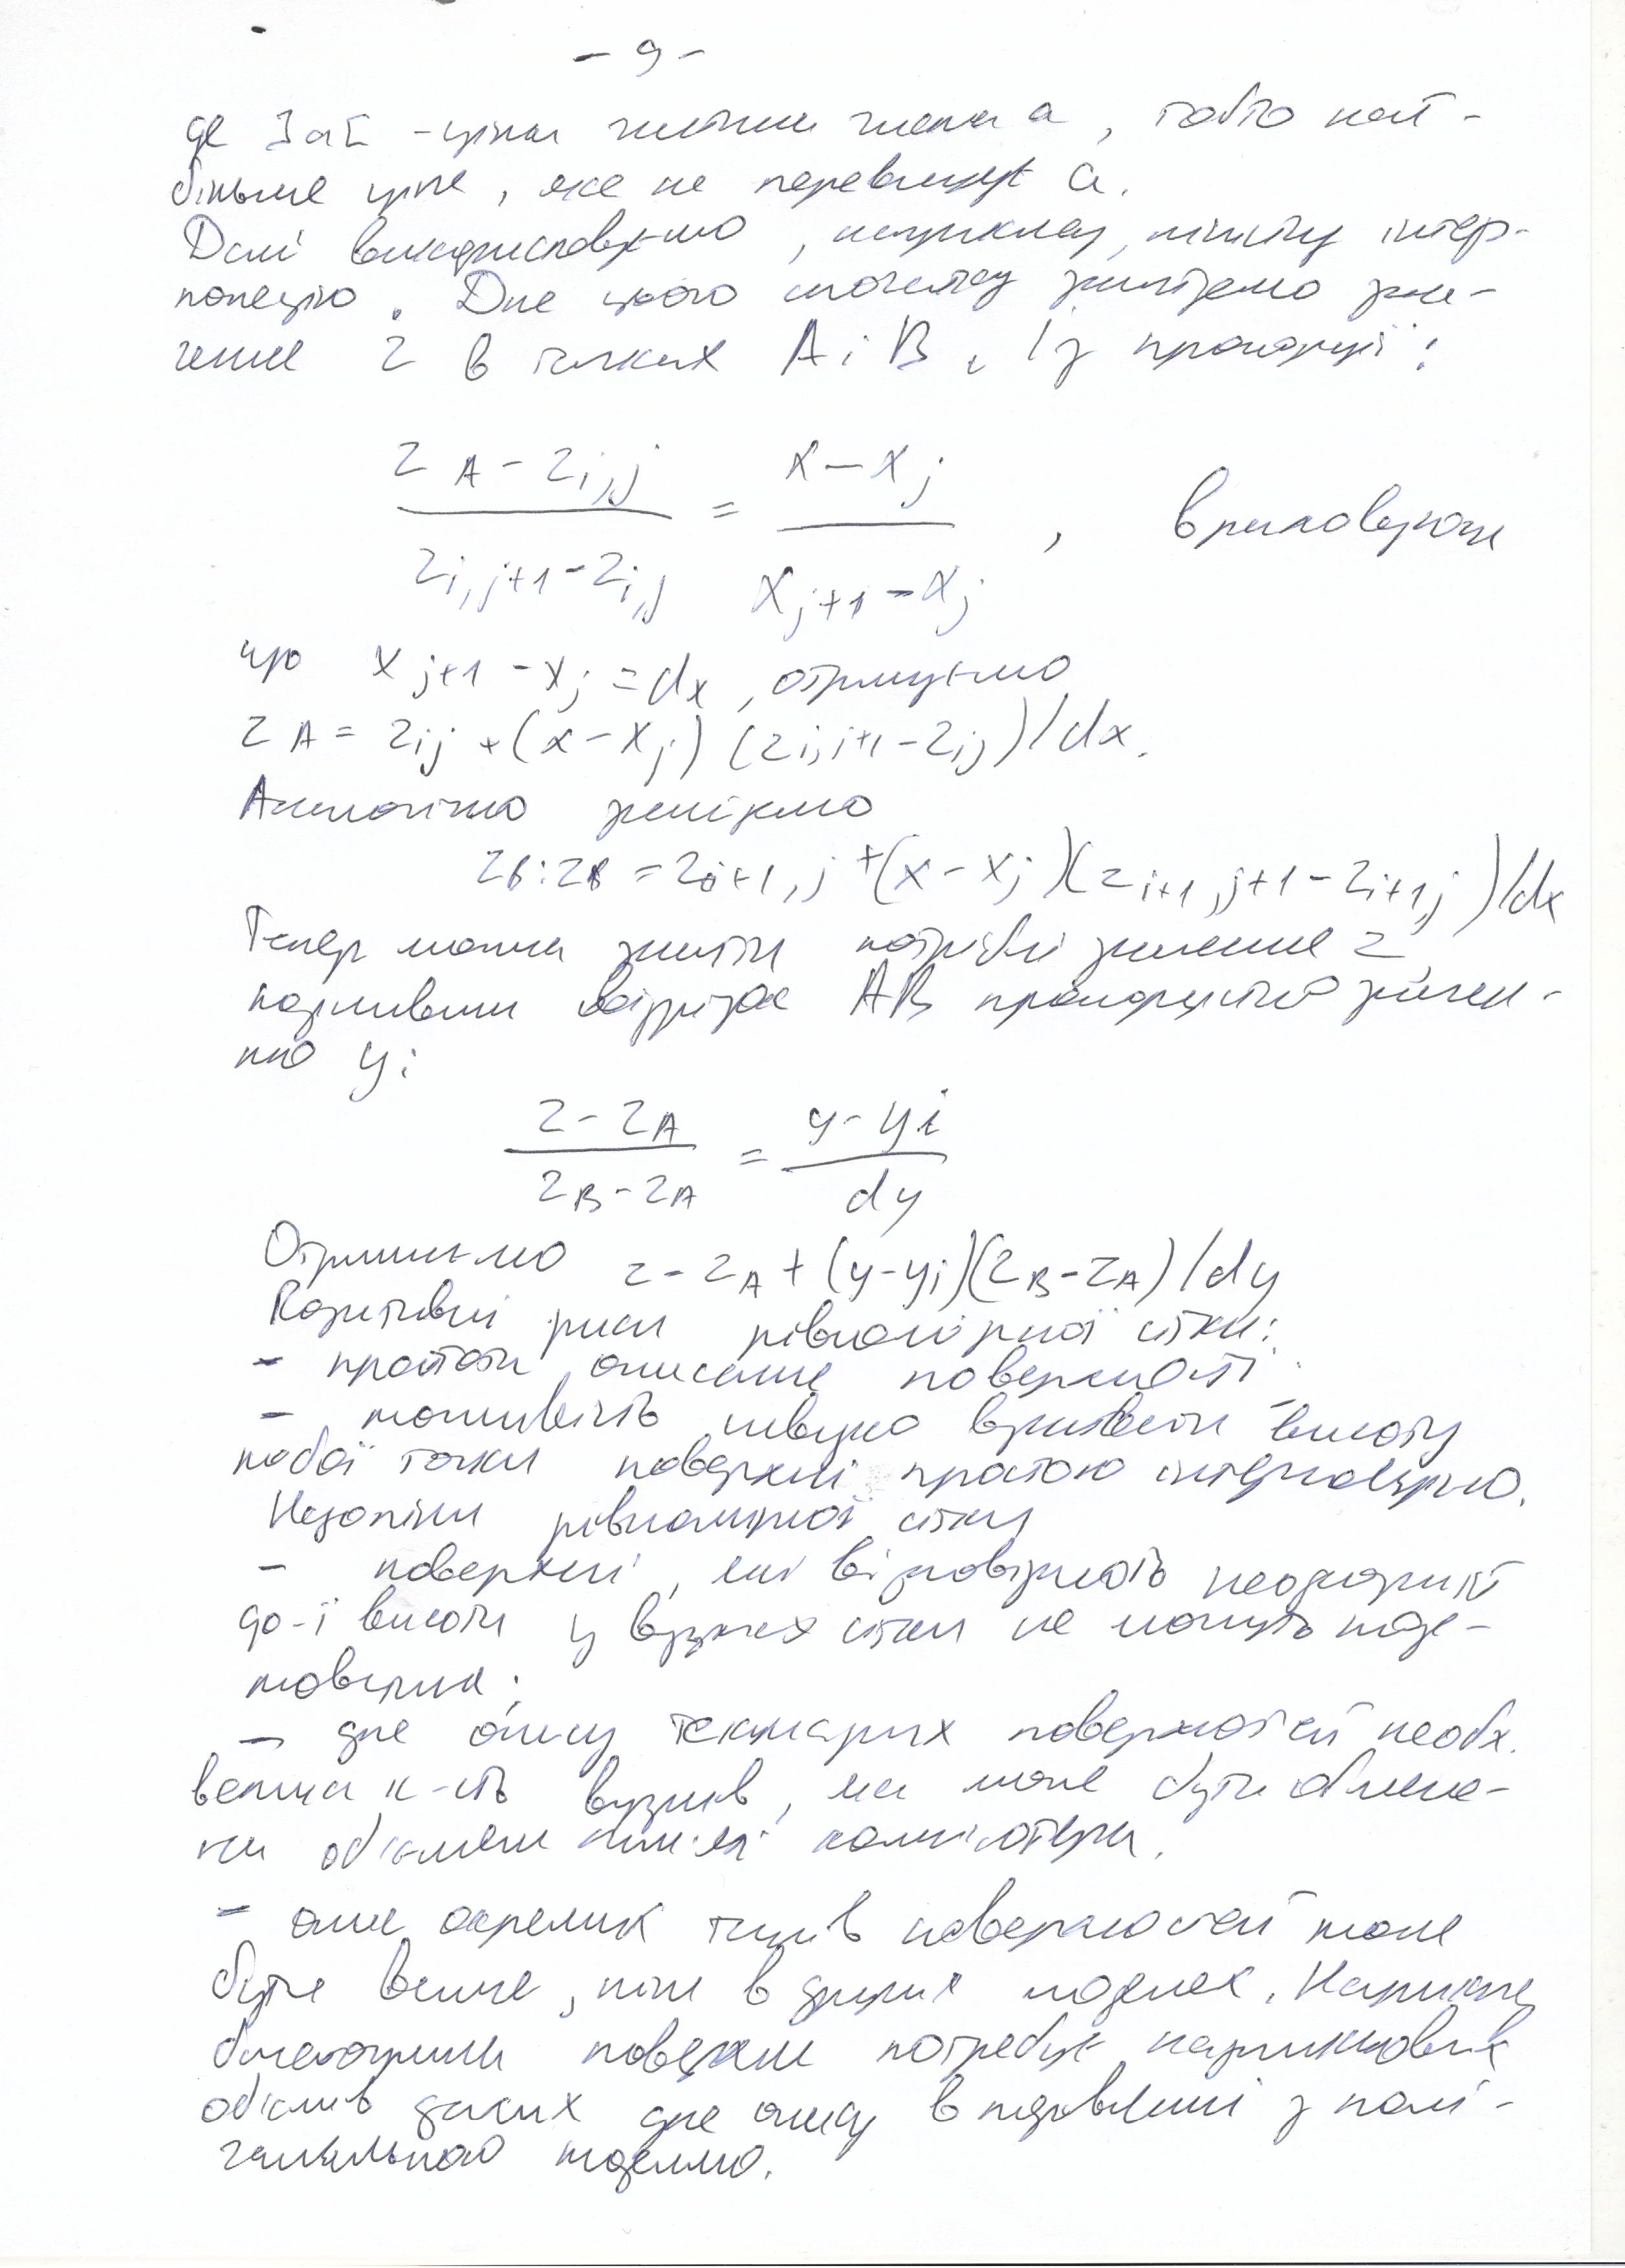 - 9 -
де [a] - ціла частина числа a, тобто най-
більше ціле, яке не перевищує a.
Далі використовуємо, наприклад, лінійну інтер-
поляцію. Для цього спочатку знайдемо зна-
чення z в точках A і B, Із пропорції:
(z A - z i,j) / (z i,j+1 - z i,j) = (x - x j) / (x j+1 - x j) , враховуючи
що x j+1 - x j = dx, отримуємо
z A = z ij + (x - x j) (z i,j+1 - z ij) / dx.
Аналогічно знайдемо
zB: zB = z i+1,j + (x - x j)(z i+1,j+1 - z i+1,j) / dx
Тепер можна знайти потрібні значення z
поділивши відрізок AB пропорційно значен-
ню y:
(z - z A) / (z B - z A) = (y - y i) / dy
Отримаємо z = z A + (y - y i)(z B - z A) / dy
Позитивні риси рівномірної сітки:
- простота описання поверхності
- можливість швидко визначити висоту
любої точки поверхні простою інтерполяцією.
Недоліки рівномірної сітки
- поверхні, які відповідають неоднозначній
ф-ї висоти у вузлах сітки не можуть моде-
люватися;
- для опису складних поверхностей необх.
велика к-сть вузлів, яка може бути обмеже-
на об'ємом пам'яті комп'ютера.
- опис окремих типів поверхностей може
бути важче, ніж в других моделях. Наприклад
багатогранна поверхня потребує надлишковий
об'єм даних для опису в порівнянні з полі-
гональною моделлю.